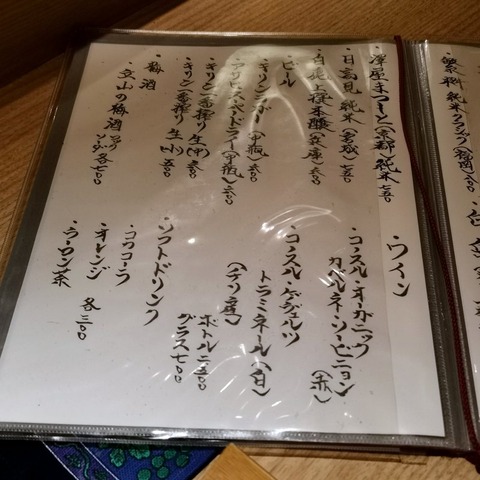 繁桝 純米クラシック(福岡)六〇〇
・澤屋まつもと(京都)純米 七五〇
・日高見 純米(宮城)七五〇
(兵庫)八〇〇
・ビール
・キリンラガー(中瓶)六〇〇
・アサヒスーパードライ(中瓶)六〇〇
・キリン一番搾り 生(中)六〇〇
・キリン一番搾り 生(小)五〇〇
・梅酒
・文山の梅酒 ロック ソーダ 各七〇〇
・ワイン
・コノスル・オーガニック
カベルネ・ソービニヨン(赤)
・コノスル・ゲヴュルツ
トラミネール(白)
(チリ産)
ボトル 二五〇〇
グラス 七〇〇
・ソフトドリンク
・コカコーラ
・オレンジ 各三〇〇
・ウーロン茶